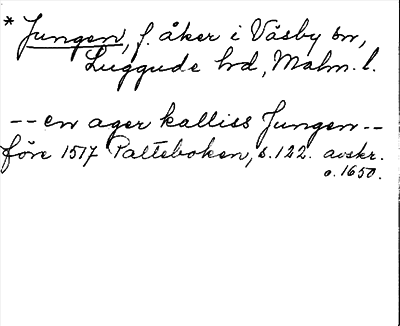 * Jungen, f. åker i Väsby sn,
Luggude hd, Malm. l.
-- en ager kalliss Jungen --
före 1517 Palteboken, s. 122. avskr.
o. 1650.